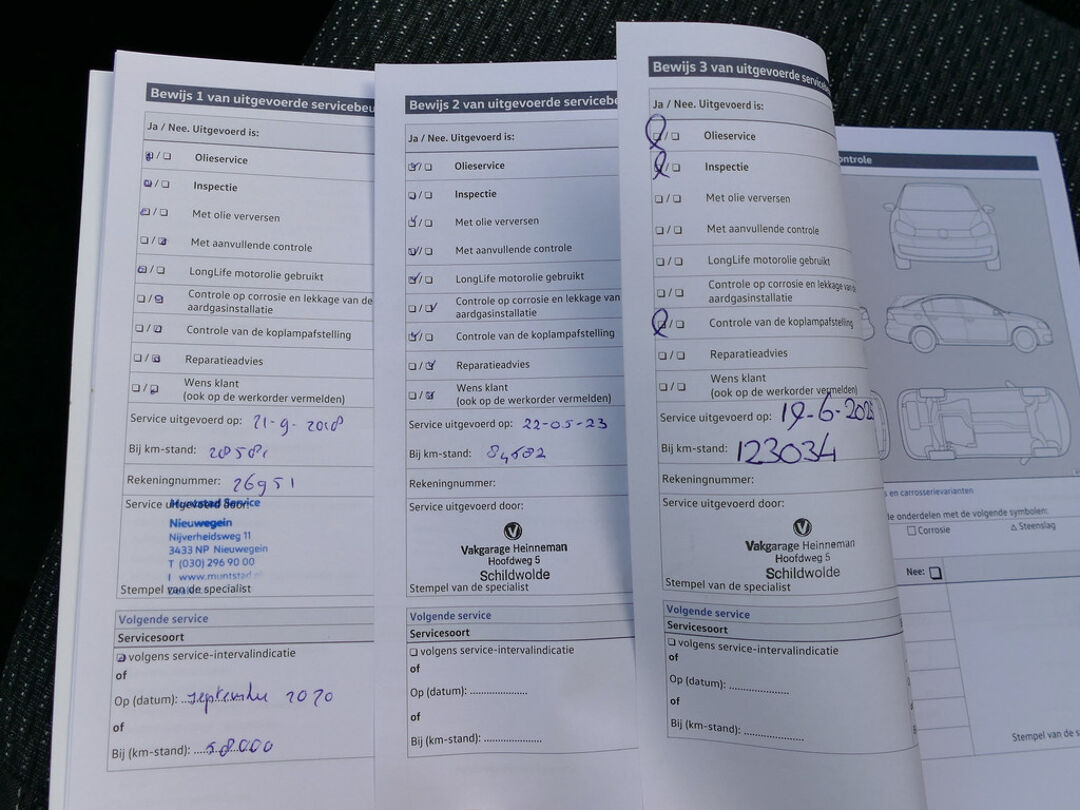 Bewijs 1 van uitgevoerde servicebeu
Ja / Nee. Uitgevoerd is:
Olieservice
Inspectie
Met olie verversen
Met aanvullende controle
LongLife motorolie gebruikt
Controle op corrosie en lekkage van de
aardgasinstallatie
Controle van de koplampafstelling
Reparatieadvies
Wens klant
(ook op de werkorder vermelden)
Service uitgevoerd op: 21-9-2018
Bij km-stand: 28581
Rekeningnummer: 26951
Service uitgevoerd door:
Muntstad Service
Nieuwegein
Nijverheidsweg 11
3433 NP Nieuwegein
T (030) 296 90 00
I www.muntstad
Stempel van de specialist
Volgende service
Servicesoort
volgens service-intervalindicatie
of
Op (datum): september 2020
of
Bij (km-stand): 58000
Bewijs 2 van uitgevoerde servicebe
Ja / Nee. Uitgevoerd is:
Olieservice
Inspectie
Met olie verversen
Met aanvullende controle
LongLife motorolie gebruikt
Controle op corrosie en lekkage van
aardgasinstallatie
Controle van de koplampafstelling
Reparatieadvies
Wens klant
(ook op de werkorder vermelden)
Service uitgevoerd op: 22-05-23
Bij km-stand:
Rekeningnummer:
Service uitgevoerd door:
V
Vakgarage Heinneman
Hoofdweg 5
Schildwolde
Stempel van de specialist
Volgende service
Servicesoort
volgens service-intervalindicatie
of
Op (datum): ....................
of
Bij (km-stand): ....................
Bewijs 3 van uitgevoerde service
Ja / Nee. Uitgevoerd is:
Olieservice
Inspectie
Met olie verversen
Met aanvullende controle
LongLife motorolie gebruikt
Controle op corrosie en lekkage van de
aardgasinstallatie
Controle van de koplampafstelling
Reparatieadvies
Wens klant
(ook op de werkorder vermelden)
Service uitgevoerd op: 19-6-2025
Bij km-stand: 123034
Rekeningnummer:
Service uitgevoerd door:
V
Vakgarage Heinneman
Hoofdweg 5
Schildwolde
Stempel van de specialist
Volgende service
Servicesoort
volgens service-intervalindicatie
of
Op (datum): ....................
of
Bij (km-stand): ....................
ontrole
s en carrosserievarianten
le onderdelen met de volgende symbolen:
Corrosie
Steenslag
Nee:
Stempel van de s